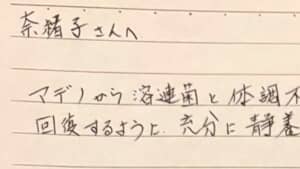 奈緒子さんへ
マデノから溶連菌と体調不
回復するように、充分に静養